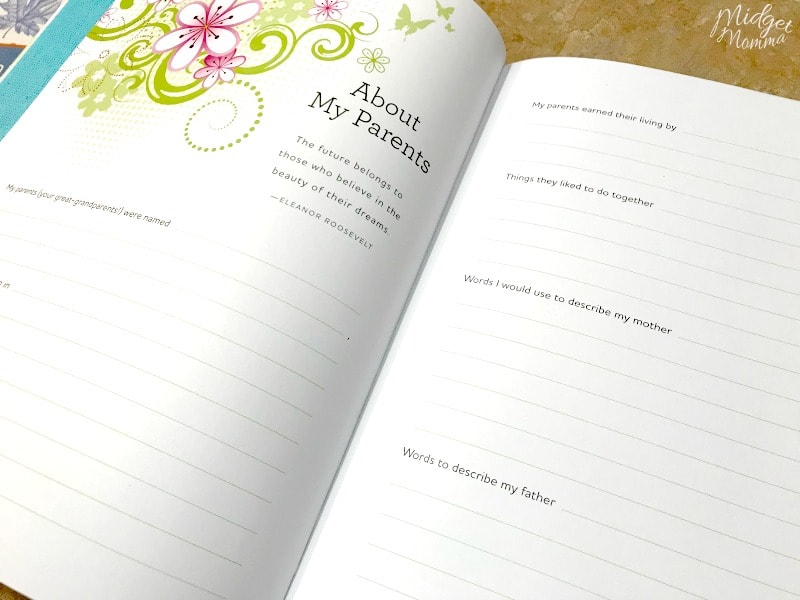 About
My Parents
The future belongs to
those who believe in the
beauty of their dreams.
—ELEANOR ROOSEVELT
My parents (your great-grandparents!) were named
in
My parents earned their living by
Things they liked to do together
Words I would use to describe my mother
Words to describe my father
Midget
Momma